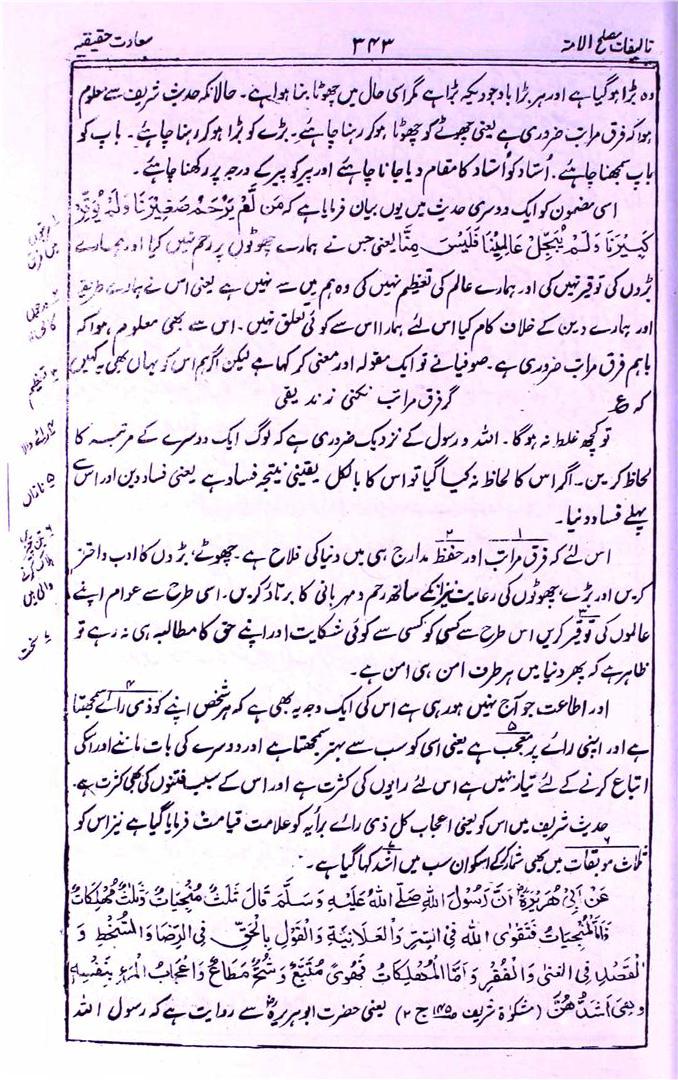 تالیفات مصلح الامۃ ۳۴۳ سعادت حقیقیہ
وہ بڑا ہو گیا ہے اور ہر بڑا باوجودیکہ بڑا ہے مگر اسی حال میں چھوٹا بنا ہوا ہے۔ حالانکہ حدیث شریف سے معلوم
ہوا کہ فرق مراتب ضروری ہے یعنی چھوٹے کو چھوٹا ہو کر رہنا چاہئے۔ بڑے کو بڑا ہو کر رہنا چاہئے۔ باپ کو
باپ سمجھنا چاہئے۔ اُستاد کو اُستاد کا مقام دیا جانا چاہئے اور پیر کو پیر کے درجہ پر رکھنا چاہئے۔
اسی مضمون کو ایک دوسری حدیث میں یوں بیان فرمایا ہے کہ مَن لَّمْ یَرْحَمْ صَغِیْرَنَا وَلَمْ یُوَقِّرْ
کَبِیْرَنَا وَلَمْ یُبَجِّلْ عَالِمِیْنَا فَلَیْسَ مِنَّا یعنی جس نے ہمارے چھوٹوں پر رحم نہیں کیا اور ہمارے
بڑوں کی توقیر نہیں کی اور ہمارے عالم کی تعظیم نہیں کی وہ ہم میں سے نہیں ہے یعنی اس نے ہمارے طریقے
اور ہمارے دین کے خلاف کام کیا اس لئے ہمارا اس سے کوئی تعلق نہیں۔ اس سے بھی معلوم ہوا کہ
باہم فرق مراتب ضروری ہے۔ صوفیا نے تو ایک مقولہ اور معنی کر کہا ہے لیکن اگر ہم اس کو یہاں بھی یہ کہیں
کہ ع گر فرق مراتب نکنی زندیقی
تو کچھ غلط نہ ہوگا۔ اللہ و رسول کے نزدیک ضروری ہے کہ لوگ ایک دوسرے کے مرتبہ کا
لحاظ کریں۔ اگر اس کا لحاظ نہ کیا گیا تو اس کا بالکل یقینی نتیجہ فساد ہے یعنی فساد دین اور اس سے
پہلے فساد دنیا۔
اس لئے کہ فرق مراتب اور حفظ مدارج ہی میں دنیا کی فلاح ہے۔ چھوٹے، بڑوں کا ادب و احترام
کریں اور بڑے، چھوٹوں کی رعایت نیز انکے ساتھ رحم و مہربانی کا برتاؤ کریں۔ اسی طرح سے عوام اپنے
عالموں کی توقیر کریں اس طرح سے کسی کو کسی سے کوئی شکایت اور اپنے حق کا مطالبہ ہی نہ رہے تو
ظاہر ہے کہ پھر دنیا میں ہر طرف امن ہی امن ہے۔
اور اطاعت جو آج نہیں ہو رہی ہے اس کی ایک وجہ یہ بھی ہے کہ ہر شخص اپنے کو ذی رائے سمجھتا
ہے اور اپنی رائے پر معجب ہے یعنی اسی کو سب سے بہتر سمجھتا ہے اور دوسرے کی بات ماننے اور اسکی
اتباع کرنے کے لئے تیار نہیں ہے اس لئے رایوں کی کثرت ہے اور اس کے سبب فتنوں کی بھی کثرت ہے۔
حدیث شریف میں اس کو یعنی اعجاب کل ذی رائے برأیہ کو علامت قیامت فرمایا گیا ہے نیز اس کو
ثلاث موبقات میں بھی شمار کرکے اسکو ان سب میں اشد کہا گیا ہے۔
عَنْ اَبِیْ ھُرَیْرَۃَؓ اَنَّ رَسُوْلَ اللہِ صَلَّی اللہُ عَلَیْہِ وَسَلَّمَ قَالَ ثَلٰثٌ مُنْجِیَاتٌ وَثَلٰثٌ مُھْلِکَاتٌ
فَاَمَّا الْمُنْجِیَاتُ فَتَقْوَی اللہِ فِی السِّرِّ وَالْعَلَانِیَۃِ وَالْقَوْلُ بِالْحَقِّ فِی الرِّضَا وَالسُّخْطِ وَ
الْقَصْدُ فِی الْغِنٰی وَالْفَقْرِ وَاَمَّا الْمُھْلِکَاتُ فَھَوًی مُتَّبَعٌ وَشُحٌّ مُطَاعٌ وَاِعْجَابُ الْمَرْءِ بِنَفْسِہٖ
وَھِیَ اَشَدُّھُنَّ (مشکوٰۃ شریف ج ۲) یعنی حضرت ابو ہریرہؓ سے روایت ہے کہ رسول اللہ
۳ تعظیم
۴ رائے والا
۵ نازاں
والی ہیں
۷ سخت